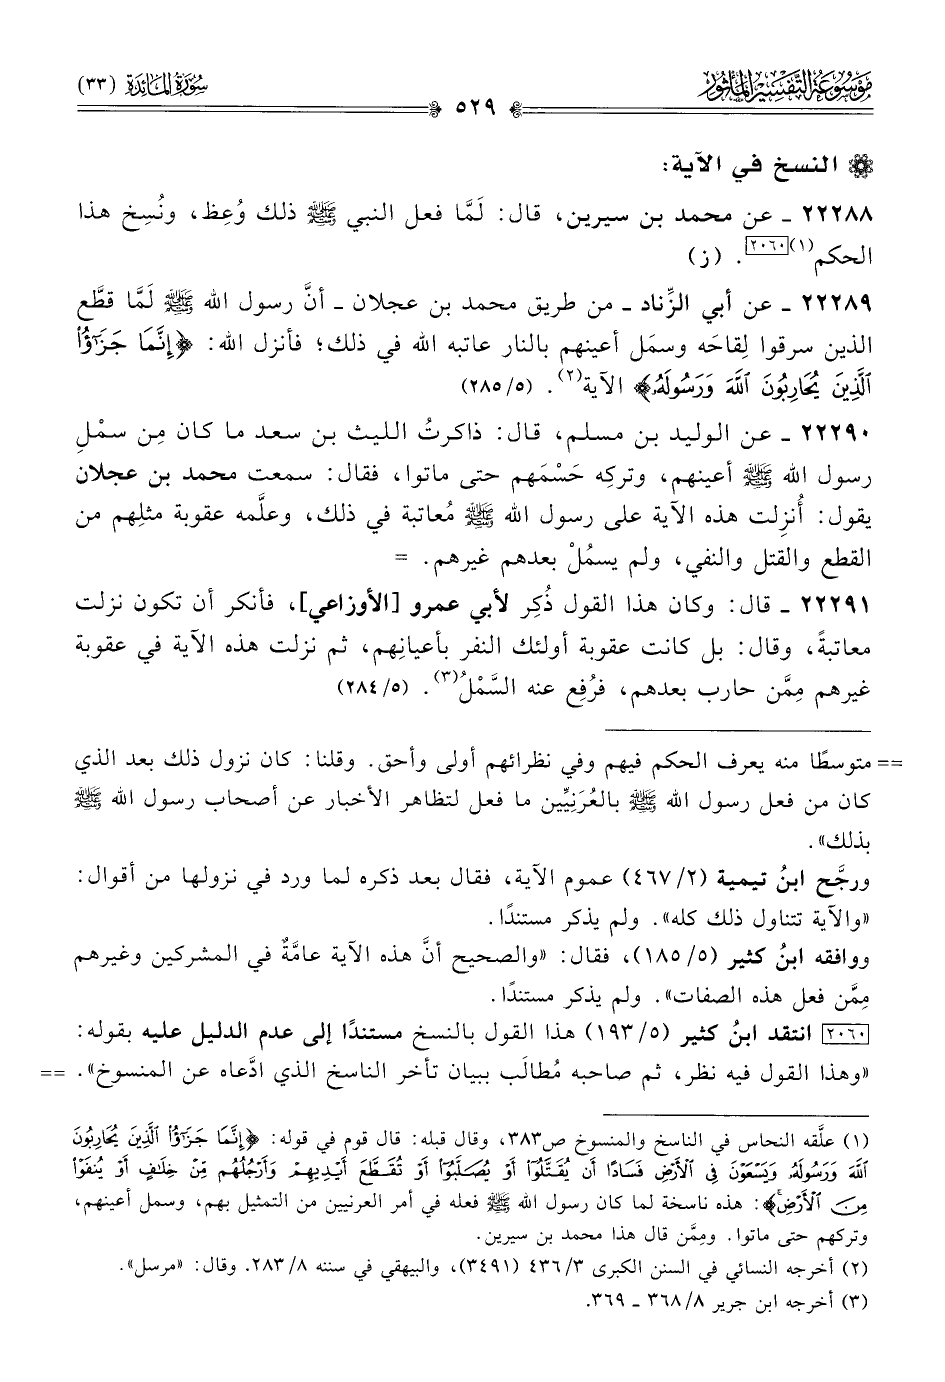 موسوعة التفسير المأثور
سورة المائدة (٣٣)
٥٢٩
النسخ في الآية:
٢٢٢٨٨ ـ عن محمد بن سيرين، قال: لَمَّا فعل النبي ﷺ ذلك وُعِظ، ونُسِخ هذا
الحكم(١)[٢٠٦٠]. (ز)
٢٢٢٨٩ ـ عن أبي الزِّناد ـ من طريق محمد بن عجلان ـ أنَّ رسول الله ﷺ لَمَّا قطَّع
الذين سرقوا لِقاحَه وسمَل أعينهم بالنار عاتبه الله في ذلك؛ فأنزل الله: ﴿إِنَّمَا جَزَٰٓؤُاْ
ٱلَّذِينَ يُحَارِبُونَ ٱللَّهَ وَرَسُولَهُۥ﴾ الآية(٢). (٢٨٥/٥)
٢٢٢٩٠ ـ عن الوليد بن مسلم، قال: ذاكرتُ الليث بن سعد ما كان مِن سمْلِ
رسول الله ﷺ أعينهم، وتركِه حَسْمَهم حتى ماتوا، فقال: سمعت محمد بن عجلان
يقول: أُنزِلت هذه الآية على رسول الله ﷺ مُعاتبة في ذلك، وعلَّمه عقوبة مثلِهم من
القطع والقتل والنفي، ولم يسمُلْ بعدهم غيرهم. =
٢٢٢٩١ ـ قال: وكان هذا القول ذُكِر لأبي عمرو [الأوزاعي]، فأنكر أن تكون نزلت
معاتبةً، وقال: بل كانت عقوبة أولئك النفر بأعيانِهم، ثم نزلت هذه الآية في عقوبة
غيرهم مِمَّن حارب بعدهم، فرُفِع عنه السَّمْلُ(٣). (٢٨٤/٥)
== متوسطًا منه يعرف الحكم فيهم وفي نظرائهم أولى وأحق. وقلنا: كان نزول ذلك بعد الذي
كان من فعل رسول الله ﷺ بالعُرَنِيِّين ما فعل لتظاهر الأخبار عن أصحاب رسول الله ﷺ
بذلك».
ورجَّح ابنُ تيمية (٤٦٧/٢) عموم الآية، فقال بعد ذكره لما ورد في نزولها من أقوال:
«والآية تتناول ذلك كله». ولم يذكر مستندًا.
ووافقه ابنُ كثير (١٨٥/٥)، فقال: «والصحيح أنَّ هذه الآية عامَّةٌ في المشركين وغيرهم
مِمَّن فعل هذه الصفات». ولم يذكر مستندًا.
[٢٠٦٠] انتقد ابنُ كثير (١٩٣/٥) هذا القول بالنسخ مستندًا إلى عدم الدليل عليه بقوله:
«وهذا القول فيه نظر، ثم صاحبه مُطالَب ببيان تأخر الناسخ الذي ادَّعاه عن المنسوخ». ==
(١) علَّقه النحاس في الناسخ والمنسوخ ص٣٨٣، وقال قبله: قال قوم في قوله: ﴿إِنَّمَا جَزَٰٓؤُاْ ٱلَّذِينَ يُحَارِبُونَ
ٱللَّهَ وَرَسُولَهُۥ وَيَسْعَوْنَ فِى ٱلْأَرْضِ فَسَادًا أَن يُقَتَّلُوٓاْ أَوْ يُصَلَّبُوٓاْ أَوْ تُقَطَّعَ أَيْدِيهِمْ وَأَرْجُلُهُم مِّنْ خِلَٰفٍ أَوْ يُنفَوْاْ
مِنَ ٱلْأَرْضِۚ﴾: هذه ناسخة لما كان رسول الله ﷺ فعله في أمر العرنيين من التمثيل بهم، وسمل أعينهم،
وتركهم حتى ماتوا. ومِمَّن قال هذا محمد بن سيرين.
(٢) أخرجه النسائي في السنن الكبرى ٤٣٦/٣ (٣٤٩١)، والبيهقي في سننه ٢٨٣/٨. وقال: «مرسل».
(٣) أخرجه ابن جرير ٣٦٨/٨ ـ ٣٦٩.